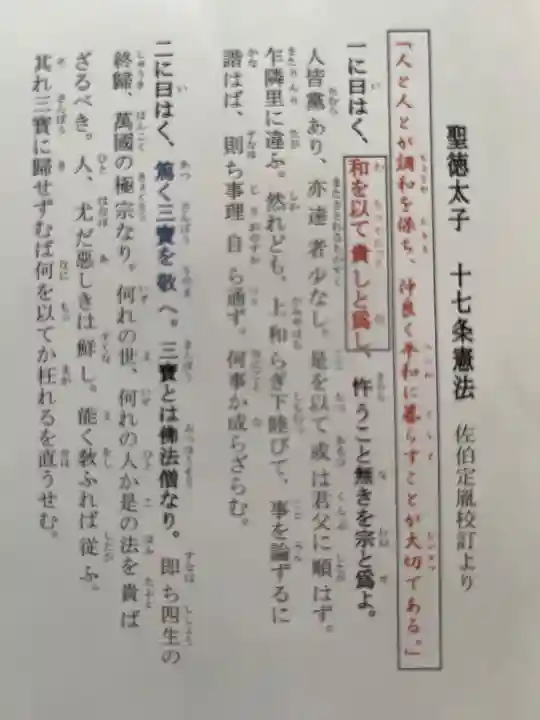 聖徳太子 十七条憲法 佐伯定胤校訂より
「人と人とが調和を保ち、仲良く平和に暮らすことが大切である。」
一に曰はく、和を以て貴しと爲し、忤うこと無きを宗と爲よ。
人皆黨あり、亦達者少なし。是を以て或は君父に順はず。
乍隣里に違ふ。然れども、上和らぎ下睦びて、事を論ずるに
諧はば、則ち事理自ら通ず。何事か成らざらむ。
二に曰はく、篤く三寶を敬へ。三寶とは佛法僧なり。即ち四生の
終歸、萬國の極宗なり。何れの世、何れの人か是の法を貴ば
ざるべき。人、尤だ惡しきは鮮し。能く敎ふれば從ふ。
其れ三寶に歸せずむば何を以てか枉れるを直うせむ。